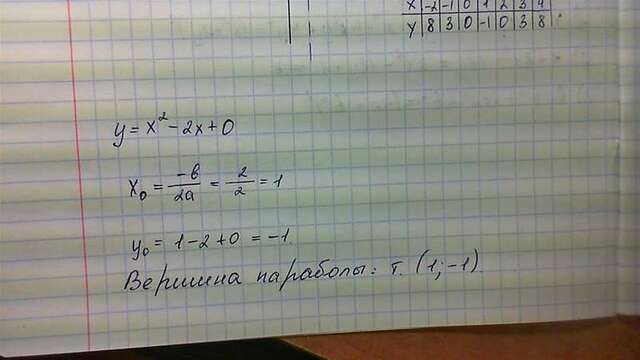 X -2 -1 0 1 2 3 4
У 8 3 0 -1 0 3 8
y = x² - 2x + 0
x₀ = -b/2a = 2/2 = 1
y₀ = 1 - 2 + 0 = -1
Вершина параболы: т. (1; -1)